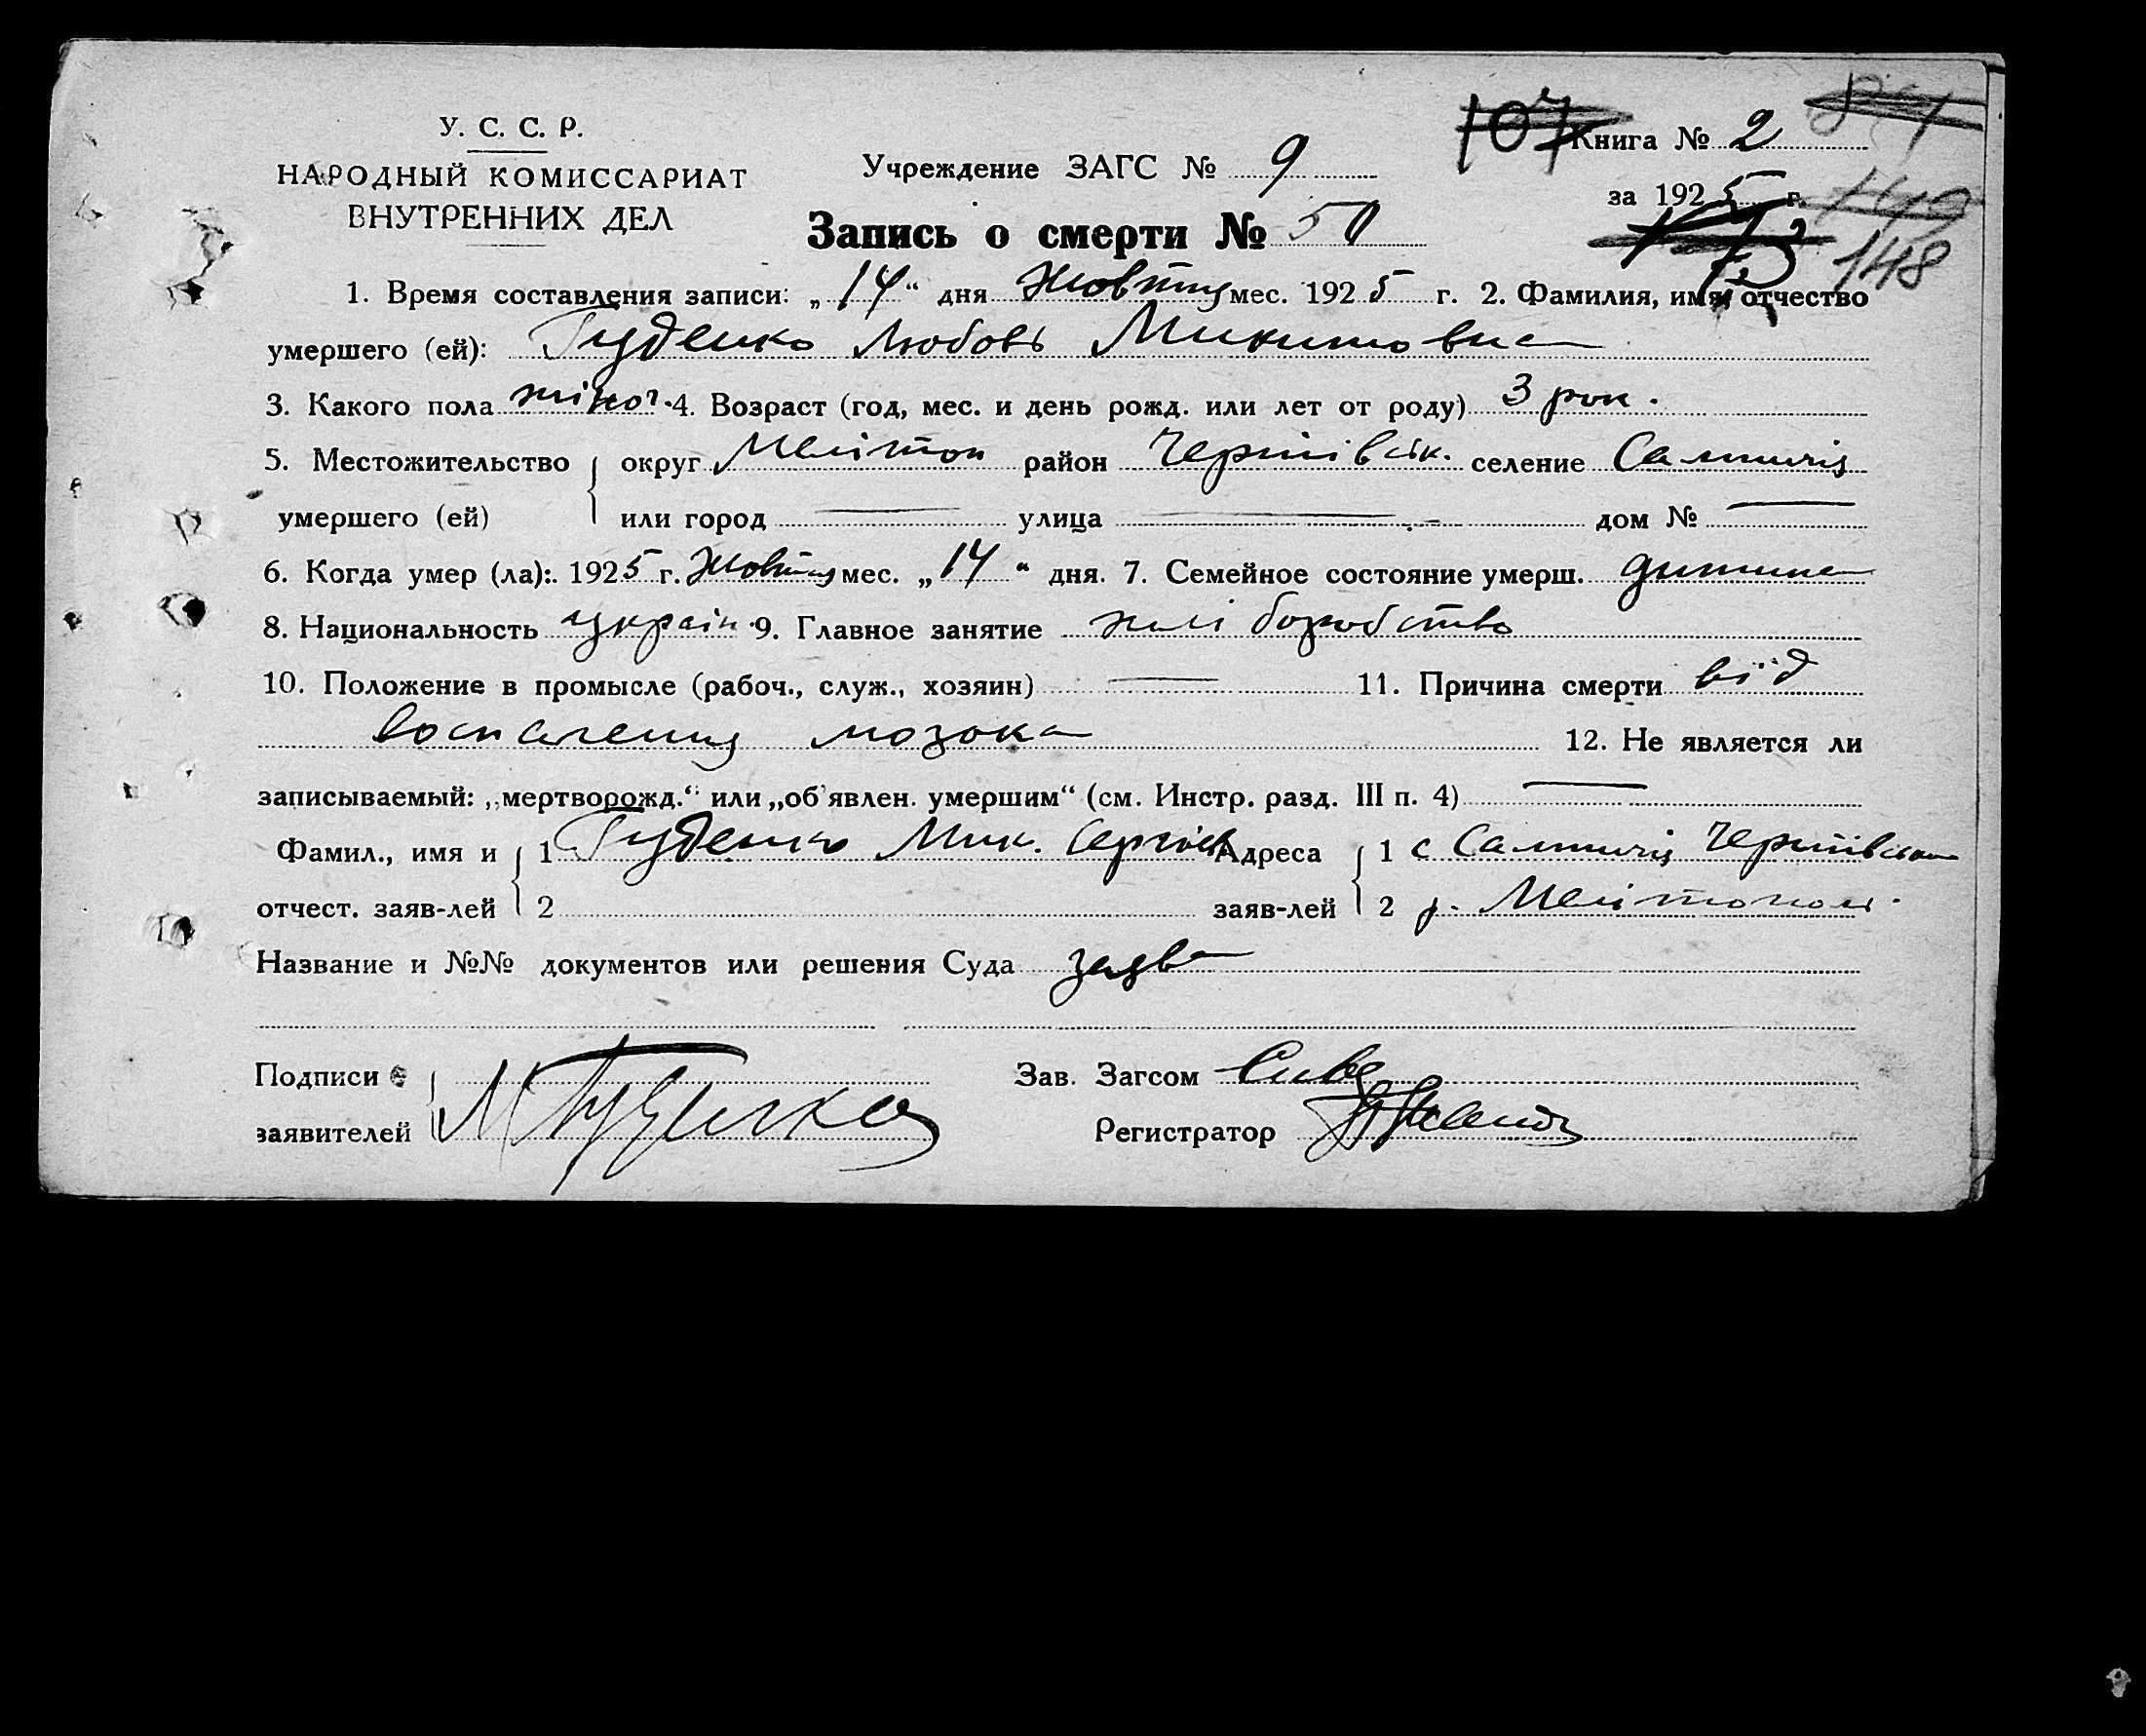 У. С. С. Р.
НАРОДНЫЙ КОМИССАРИАТ
ВНУТРЕННИХ ДЕЛ
Учреждение ЗАГС № 9
107 Книга № 2
за 1925 г. 149
148
Запись о смерти № 50
1. Время составления записи: „14“ дня Жовтня мес. 1925 г. 2. Фамилия, имя, отчество
умершего (ей): Гуденко Любовь Микитовна
3. Какого пола жіноч. 4. Возраст (год, мес. и день рожд. или лет от роду) 3 рок.
5. Местожительство округ Мелітоп район Чернігівськ. селение Салтичія
умершего (ей) или город — улица — дом № —
6. Когда умер (ла): 1925 г. Жовтня мес. „14“ дня. 7. Семейное состояние умерш. дитина
8. Национальность україн. 9. Главное занятие хліборобство
10. Положение в промысле (рабоч., служ., хозяин) — 11. Причина смерти від
воспаления мозока 12. Не является ли
записываемый: „мертворожд.“ или „об'явлен. умершим“ (см. Инстр. разд. III п. 4) —
Фамил., имя и 1 Гуденко Мик. Сергіев Адреса 1 с Салтичія
отчест. заяв-лей 2 заяв-лей 2 р. Мелітополь.
Название и №№ документов или решения Суда заява
Подписи Зав. Загсом
заявителей Регистратор